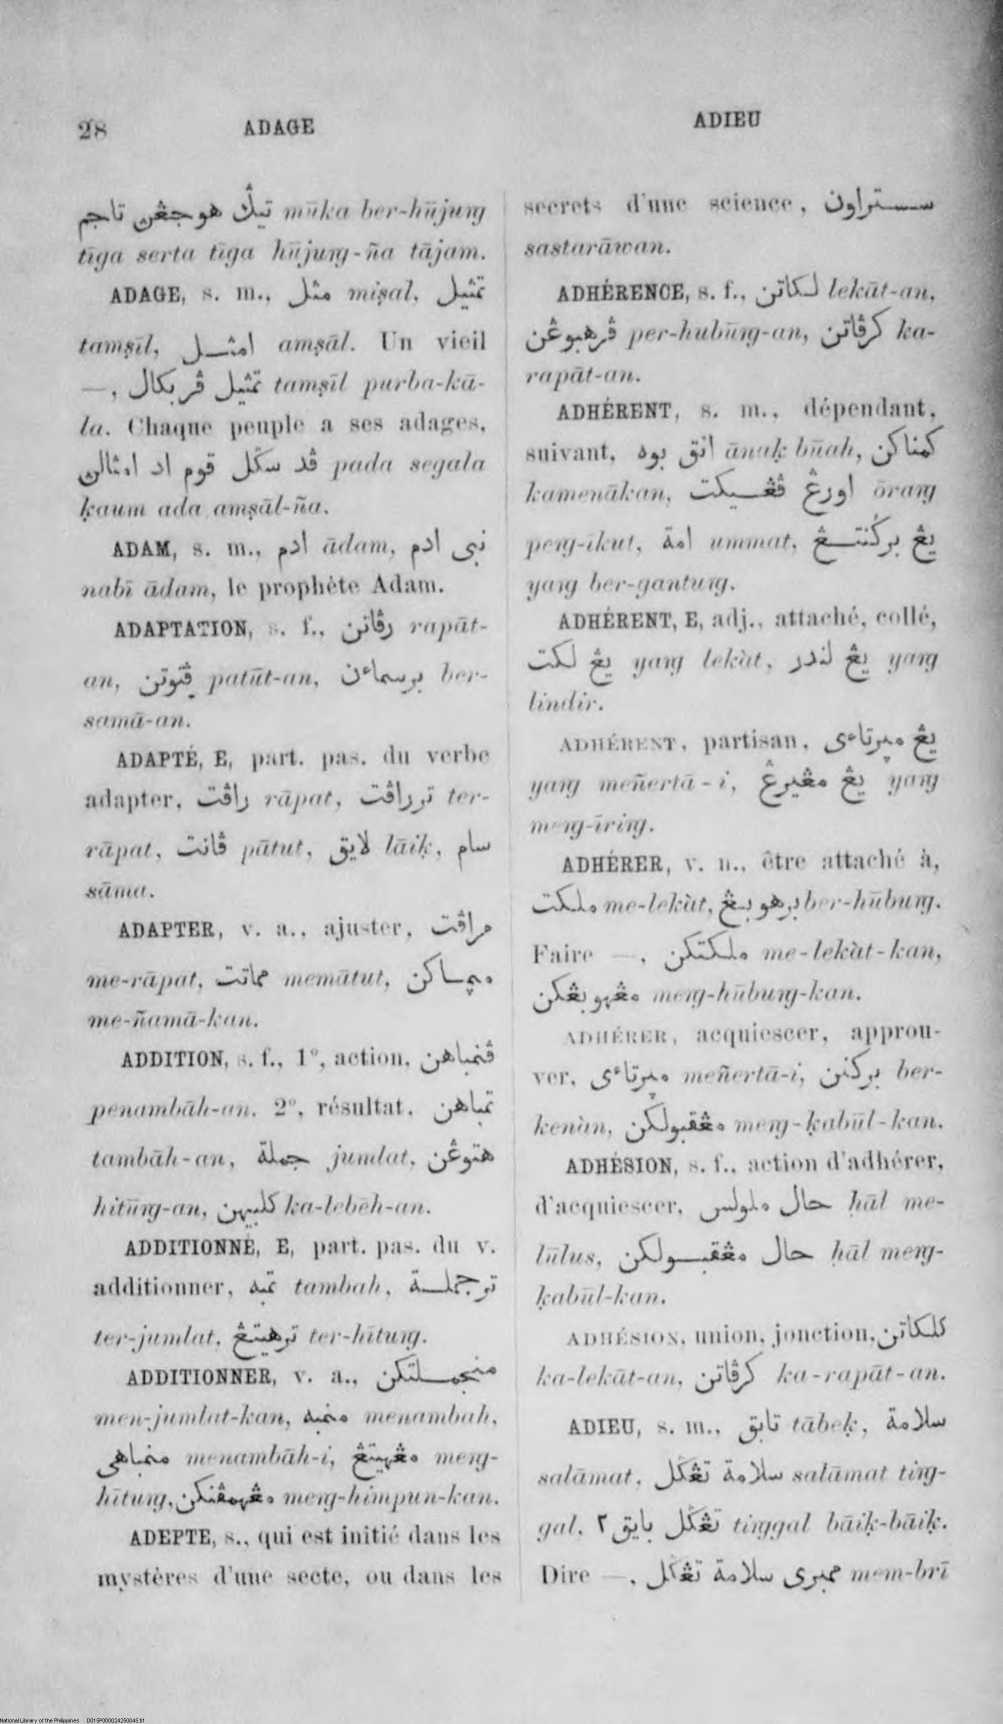 28 ADAGE ADIEU
تيݢ هوجڠن تاجم mūka ber-hūjuŋ
tīga serta tīga hūjuŋ-ña tājam.
ADAGE, s. m., مثل miṣal, تمثيل
tamṣīl, امثل amṣāl. Un vieil
—, تمثيل ڤربكال tamṣīl purba-kā-
la. Chaque peuple a ses adages,
ڤد سݢل قوم اد امثالن pada segala
ḳaum ada amṣāl-ña.
ADAM, s. m., ادم ādam, نبى ادم
nabī ādam, le prophète Adam.
ADAPTATION, s. f., رڤاتن rapāt-
an, ڤتوتن patūt-an, برسماءن ber-
samā-an.
ADAPTÉ, E, part. pas. du verbe
adapter, راڤت rāpat,ترراڤت ter-
rāpat, ڤاتت pātut, لايق lāiḳ, سام
sāma.
ADAPTER, v. a., ajuster, مراڤت
me-rāpat, مماتت memātut, مڽماكن
me-ñamā-kan.
ADDITION, s. f., 1°, action, ڤنمباهن
penambāh-an. 2°, résultat, تمباهن
tambāh-an, جملة jumlat, هتوڠن
hitūŋ-an, كلبيهن ka-lebēh-an.
ADDITIONNÉ, E, part. pas. du v.
additionner, تمبه tambah, ترجملة
ter-jumlat, ترهيتڠ ter-hītuŋ.
ADDITIONNER, v. a., منجملتكن
men-jumlat-kan, منمبه menambah,
منمباهى menambāh-i, مڠهيتڠ meŋ-
hītuŋ, مڠهمڤنكن meŋ-himpun-kan.
ADEPTE, s., qui est initié dans les
mystères d'une secte, ou dans les
secrets d'une science, سستراون
sastarāwan.
ADHÉRENCE, s. f., لكاتن lekāt-an,
ڤرهبوڠن per-hubūŋ-an, كرڤاتن ka-
rapāt-an.
ADHÉRENT, s. m., dépendant,
suivant, انق بوه ānaḳ būah, كمناكن
kamenākan, اورڠ ڤڠيكت ōraŋ
peŋ-īkut, امة ummat, يڠ برݢنتڠ
yaŋ ber-gantuŋ.
ADHÉRENT, E, adj., attaché, collé,
يڠ لكت yaŋ lekàt, يڠ لندر yaŋ
lindir.
ADHÉRENT, partisan, يڠ مڽرتاءى
yaŋ meñertā-i, يڠ مڠيرڠ yaŋ
meŋ-īriŋ.
ADHÉRER, v. n., être attaché à,
ملكت me-lekàt, برهوبڠ ber-hūbuŋ.
Faire —, ملكتكن me-lekàt-kan,
مڠهوبڠكن meŋ-hūbuŋ-kan.
ADHÉRER, acquiescer, approu-
ver, مڽرتاءى meñertā-i, بركنن ber-
kenàn, مڠقبولكن meŋ-ḳabūl-kan.
ADHÉSION, s. f., action d'adhérer,
d'acquiescer, حال ملولس ḥāl me-
lūlus, حال مڠقبولكن ḥāl meŋ-
ḳabūl-kan.
ADHÉSION, union, jonction, كلكاتن
ka-lekāt-an, كرڤاتن ka-rapāt-an.
ADIEU, s. m., تابق tābeḳ, سلامة
salāmat, سلامة تڠݢل salāmat tiŋ-
gal, تڠݢل بايق٢ tiŋgal bāiḳ-bāiḳ.
Dire —, ممبرى سلامة تڠݢل mem-brī
National Library of the Philippines